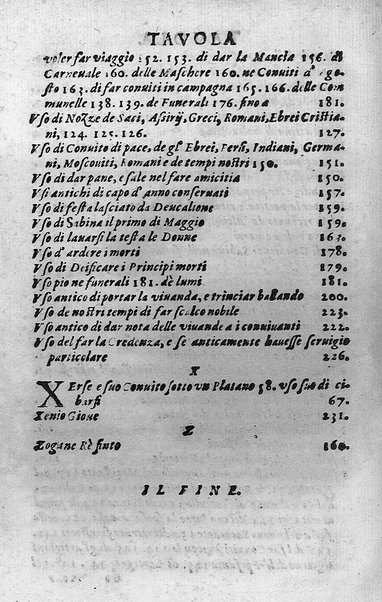 TAVOLA
voler far viaggio 152. 153. di dar la Mancia 156. di
Carneuale 160. delle Maschere 160. ne Conuiti d'Ago
sto 163. di far conuiti in campagna 165. 166. delle Com
munelle 138. 139. de Funerali 176. fino a 181.
Vso di Nozze de Saci, Assirij, Greci, Romani, Ebrei Cristia
ni, 124. 125. 126. 127.
Vso di Conuito di pace, de gl' Ebrei, Persi, Indiani, Germa
ni, Moscouiti, Romani e de tempi nostri 150. 151.
Vso di dar pane, e sale nel fare amicitia 150.
Vsi antichi di capo d'anno conseruati 157.
Vso di festa lasciato da Deucalione 159.
Vso di Sabina il primo di Maggio 159.
Vso di lauarsi la testa le Donne 163.
Vso d'ardere i morti 178.
Vso di Deificare i Principi morti 179.
Vso pio ne funerali 181. de lumi 181.
Vso antico di portar la viuanda, e trinciar ballando 200.
Vso de nostri tempi di far scalco nobile 223.
Vso antico di dar nota delle viuande a i conuiuanti 222.
Vso del far la Credenza, e se anticamente hauesse seruigio
particolare 226.
X
XErse e suo Conuito sotto vn Platano 58. vso suo di ci
barsi 67.
Xenio Gioue 231.
Z
Zogane Rè finto 160.
IL FINE.